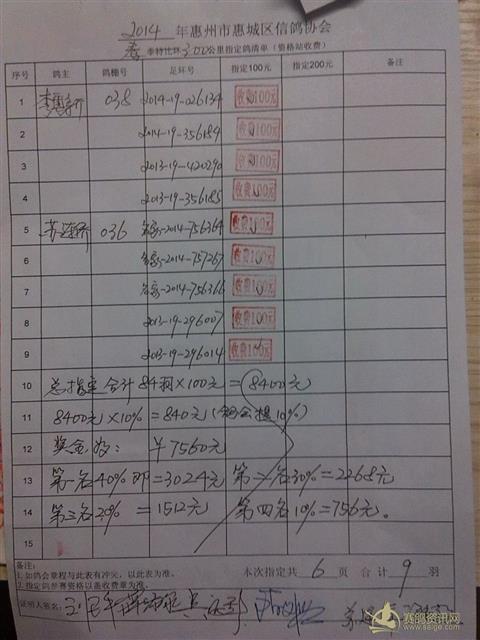 2014 年惠州市惠城区信鸽协会
春 季特比环300公里指定鸽清单（资格站收费）
序号 鸽主 鸽棚号 足环号 指定100元 指定200元 备注
1 038 2014-19-026134 收费100元
2 2014-19-356184 收费100元
3 2013-19-420290 收费100元
4 2013-19-356185 收费100元
5 036 2014-756364 收费100元
6 2014-757267 收费100元
7 2014-756366 收费100元
8 2013-19-296007 收费100元
9 2013-19-296014 收费100元
10 总指定合计84羽×100元=8400元
11 8400元×10%=840元(鸽会提10%)
12 奖金为: ￥7560元
13 第一名40%即=3024元 第二名30%=2268元
14 第三名20%=1512元 第四名10%=756元。
15
备注:
1. 如鸽会章程与此表有冲突，以此表为准。
2. 指定鸽参赛资格以盖收费章为准。
本次指定共 6 页 合计 9 羽
证明人签名:
赛鸽资讯网
www.saige.com